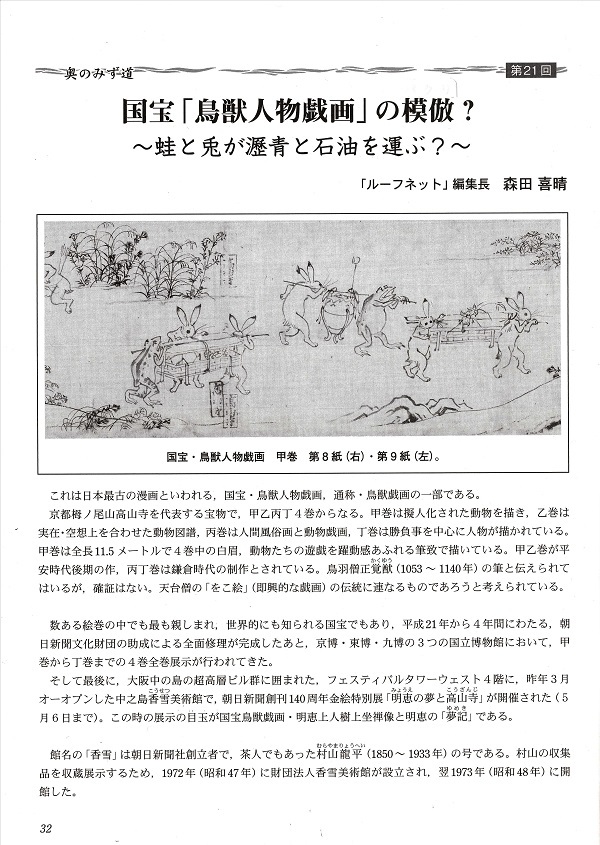 奥のみず道
第21回
国宝「鳥獣人物戯画」の模倣？
〜蛙と兎が瀝青と石油を運ぶ？〜
「ルーフネット」編集長　森田 喜晴
国宝・鳥獣人物戯画　甲巻　第８紙（右）・第９紙（左）。
これは日本最古の漫画といわれる，国宝・鳥獣人物戯画，通称・鳥獣戯画の一部である。
京都栂ノ尾山高山寺を代表する宝物で，甲乙丙丁４巻からなる。甲巻は擬人化された動物を描き，乙巻は
実在･空想上を合わせた動物図譜，丙巻は人間風俗画と動物戯画，丁巻は勝負事を中心に人物が描かれている。
甲巻は全長11.5メートルで４巻中の白眉，動物たちの遊戯を躍動感あふれる筆致で描いている。甲乙巻が平
安時代後期の作，丙丁巻は鎌倉時代の制作とされている。鳥羽僧正覚猷（1053〜1140年）の筆と伝えられて
かくゆう
はいるが，確証はない。天台僧の「をこ絵」（即興的な戯画）の伝統に連なるものであろうと考えられている。
数ある絵巻の中でも最も親しまれ，世界的にも知られる国宝でもあり，平成21年から４年間にわたる，朝
日新聞文化財団の助成による全面修理が完成したあと，京博・東博・九博の３つの国立博物館において，甲
巻から丁巻までの４巻全巻展示が行われてきた。
そして最後に，大阪中の島の超高層ビル群に囲まれた，フェスティバルタワーウェスト４階に，昨年３月
オーオプンした中之島香雪美術館で，朝日新聞創刊140周年金絵特別展「明恵の夢と高山寺」が開催された（５
こうせつ
みょうえ
こうざんじ
月６日まで）。この時の展示の目玉が国宝鳥獣戯画・明恵上人樹上坐禅像と明恵の「夢記」である。
ゆめき
館名の「香雪」は朝日新聞社創立者で，茶人でもあった村山龍平（1850〜1933年）の号である。村山の収集
むらやまりょうへい
品を収蔵展示するため，1972年（昭和47年）に財団法人香雪美術館が設立され，翌1973年（昭和48年）に開
館した。
32